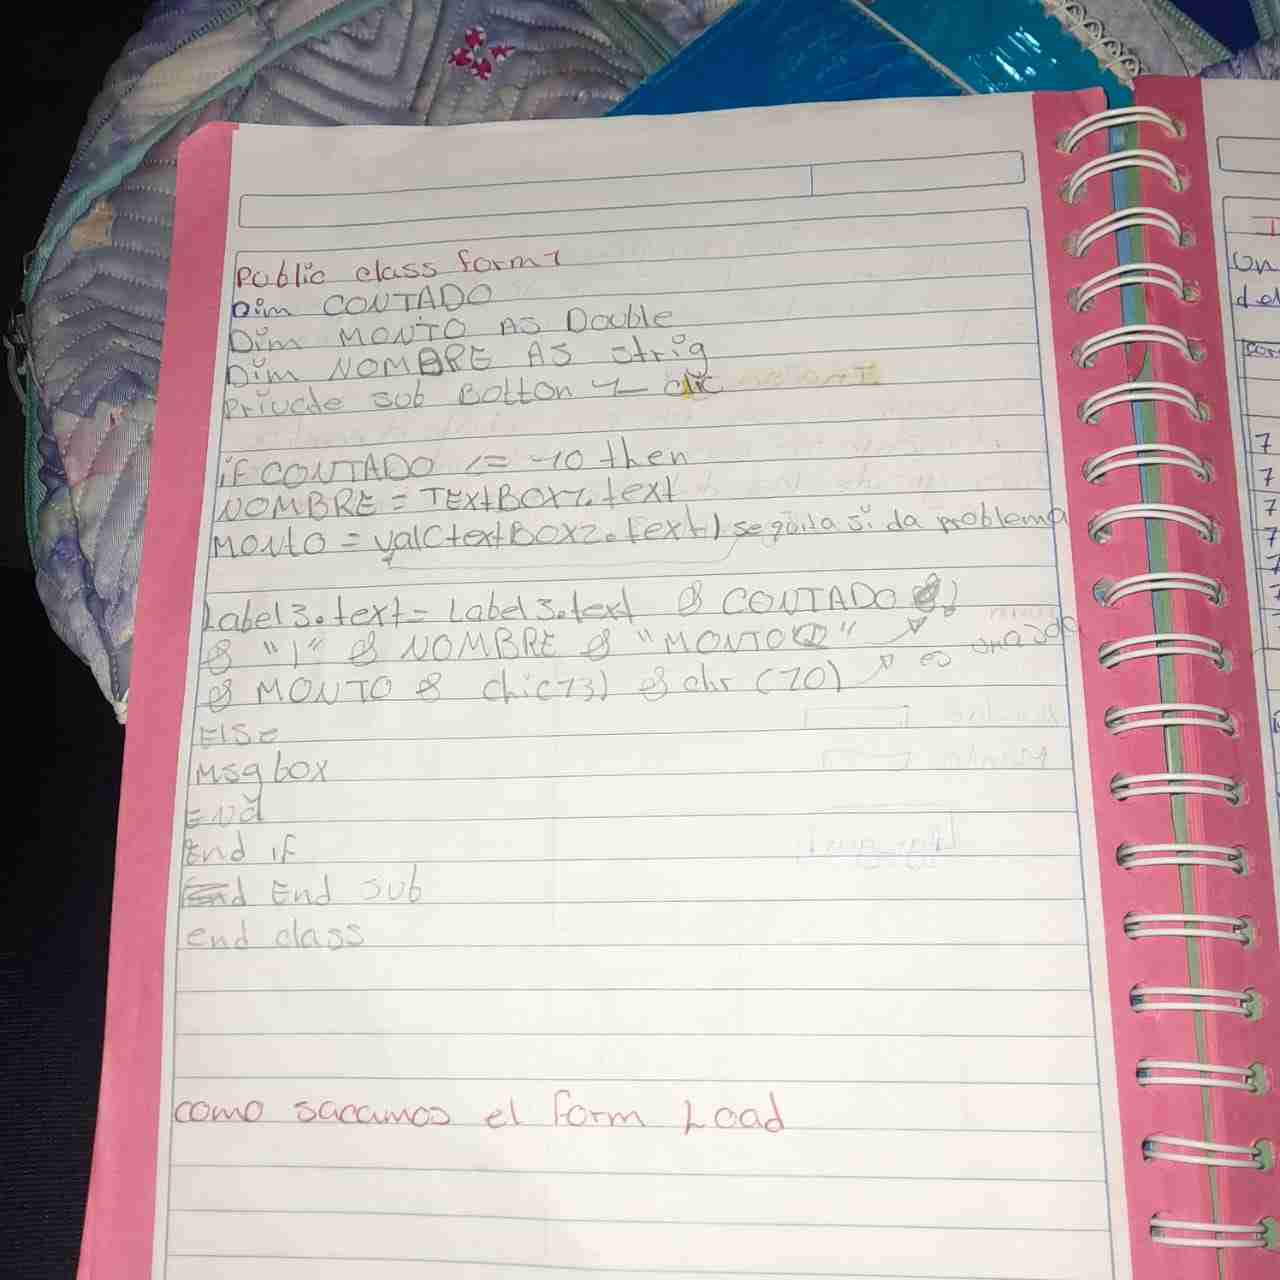 Public class form1
Dim CONTADO
Dim MONTO AS Double
Dim NOMBRE AS strig
Private sub Botton 1_ clic
if CONTADO <= 10 then
NOMBRE = TExtBOX1.text
MONTO = val(textBOX2.text) se quita si da problema
Label3.text = Label3.text & CONTADO
& ")" & NOMBRE & "MONTO"
& MONTO & chr(13) & chr (10)
Else
Msgbox
End
End if
End sub
end class
como sacamos el form Load
On
del
7
7
7
7
7